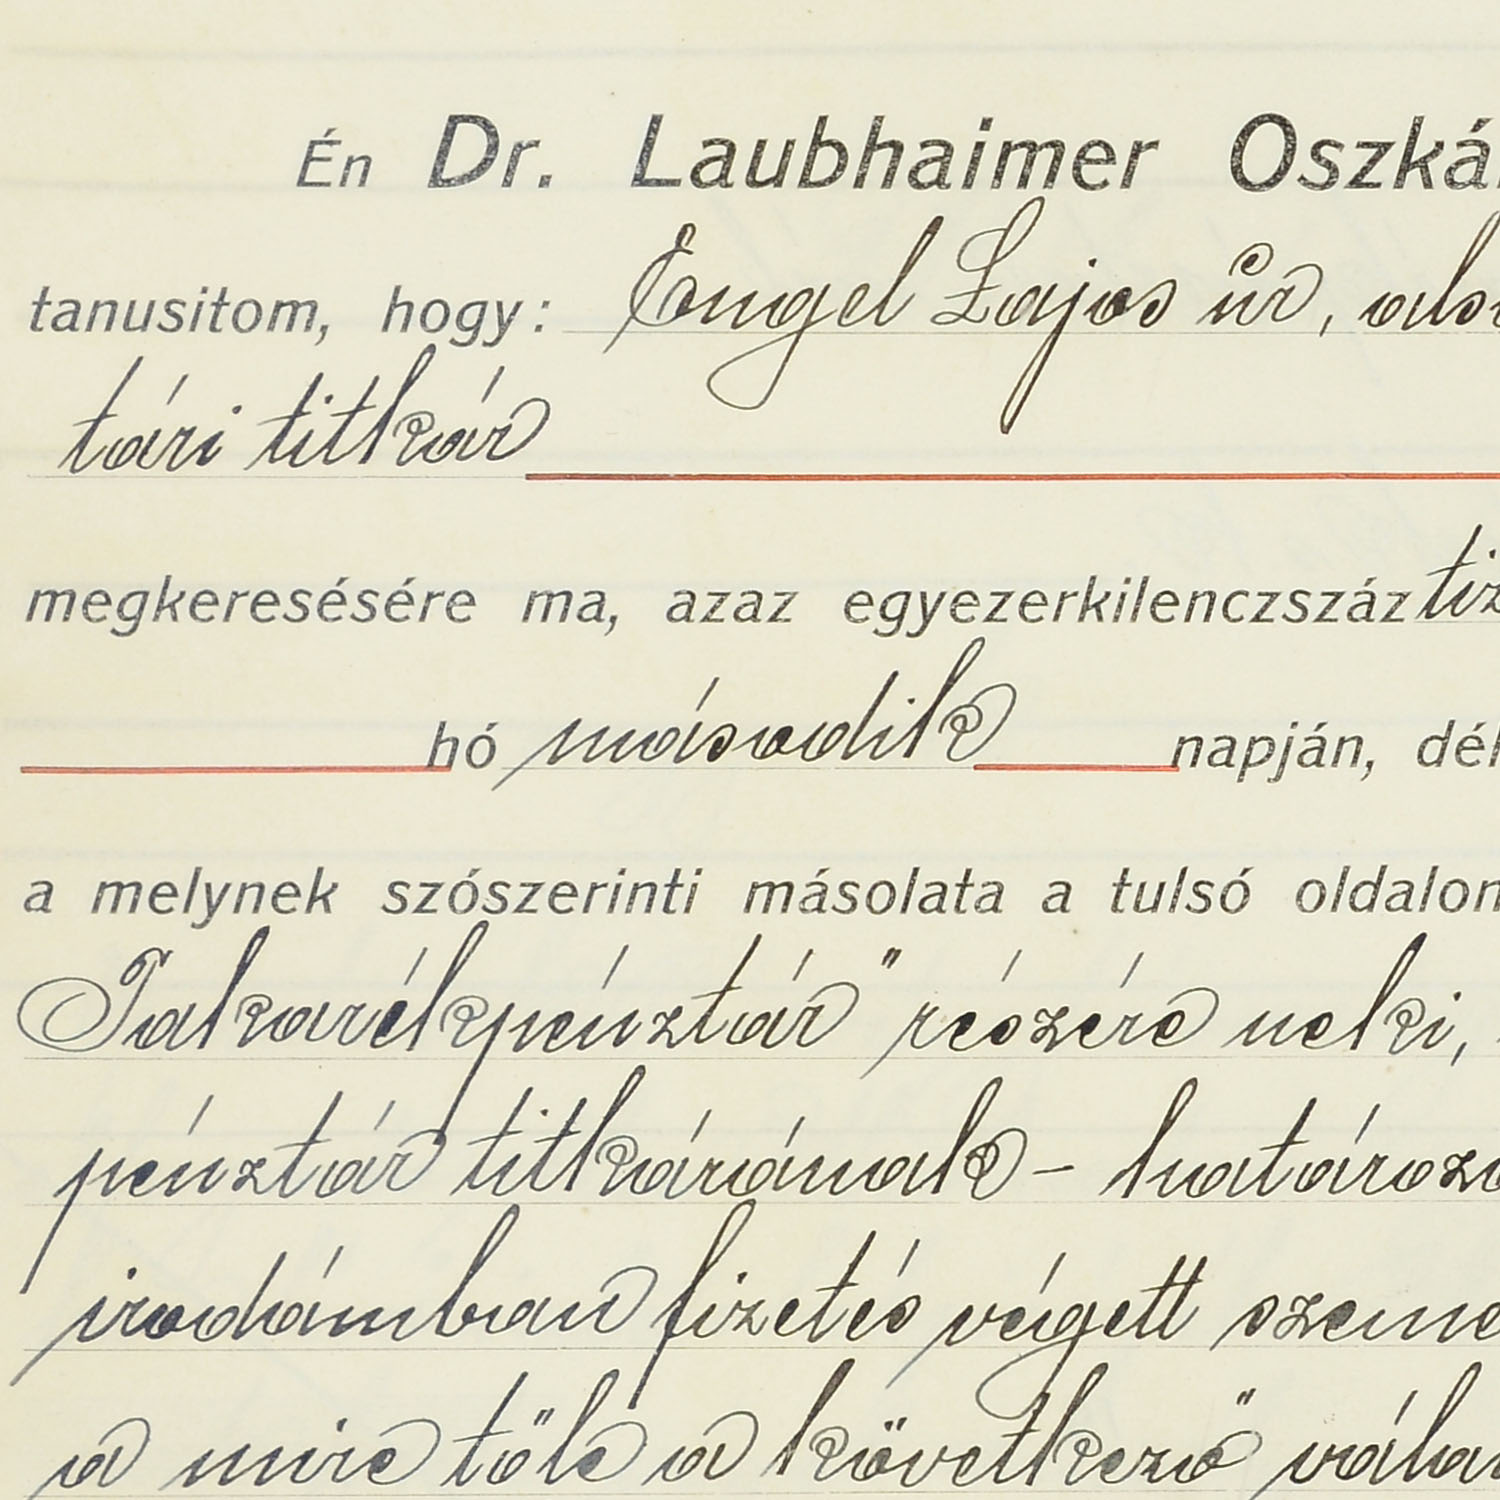 Én Dr. Laubhaimer Oszkár
tanusitom, hogy: Engel Lajos úr,
tári titkár
megkeresésére ma, azaz egyezerkilenczszáz tiz
hó második napján, dél
a melynek szószerinti másolata a tulsó oldalon
Takarékpénztár" részére neki,
pénztár titkárának - határozo
irodámban fizetés végett szeme
a mire tőle a következő válas